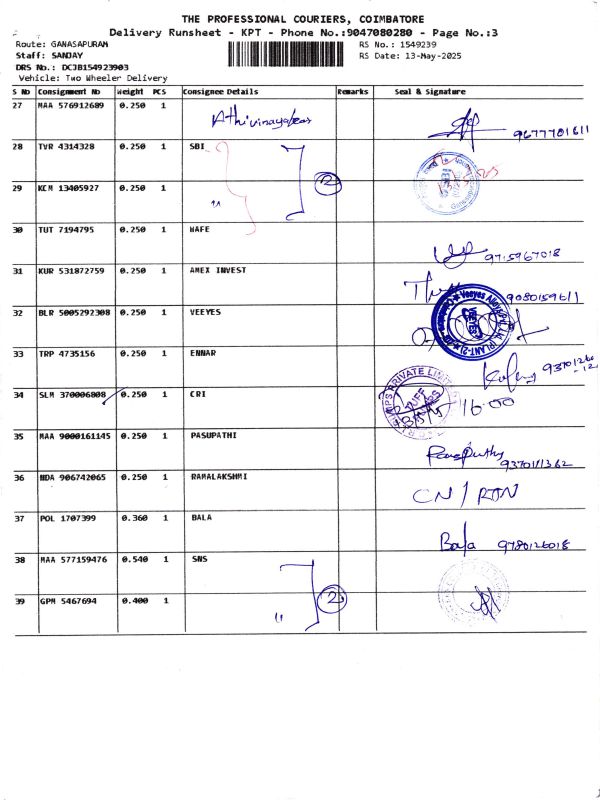 THE PROFESSIONAL COURIERS, COIMBATORE
Delivery Runsheet - KPT - Phone No.:9047080280 - Page No.:3
Route: GANASAPURAM
RS No.: 1549239
Staff: SANJAY
RS Date: 13-May-2025
DRS No.: DC3B154923903
Vehicle: Two Wheeler Delivery
S No Consignment No Weight PCS Consignee Details Remarks Seal & Signature
27 MAA 576912689 0.250 1 Athivinayagar 9677701611
28 TVR 4314328 0.250 1 SBI
2
29 KCM 13405927 0.250 1 "
30 TUT 7194795 0.250 1 WAFE 9715967018
31 KUR 531872759 0.250 1 AMEX INVEST 9080159611
32 BLR 5005292308 0.250 1 VEEYES
33 TRP 4735156 0.250 1 ENNAR
34 SLM 370006808 0.250 1 CRI 16:00
35 MAA 9000161145 0.250 1 PASUPATHI Pasupathy 9370111362
36 NDA 906742065 0.250 1 RAMALAKSHMI CN / RTN
37 POL 1707399 0.360 1 BALA Bala 9780126018
38 MAA 577159476 0.540 1 SNS
39 GPM 5467694 0.400 1 " 2